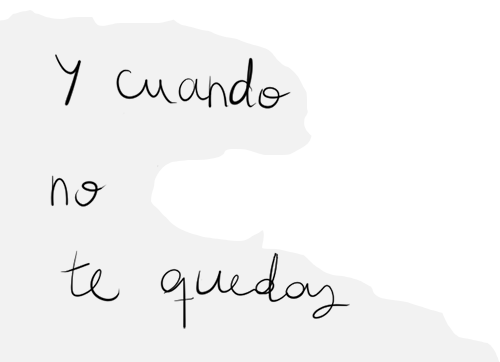 Y cuando
no
te quedas